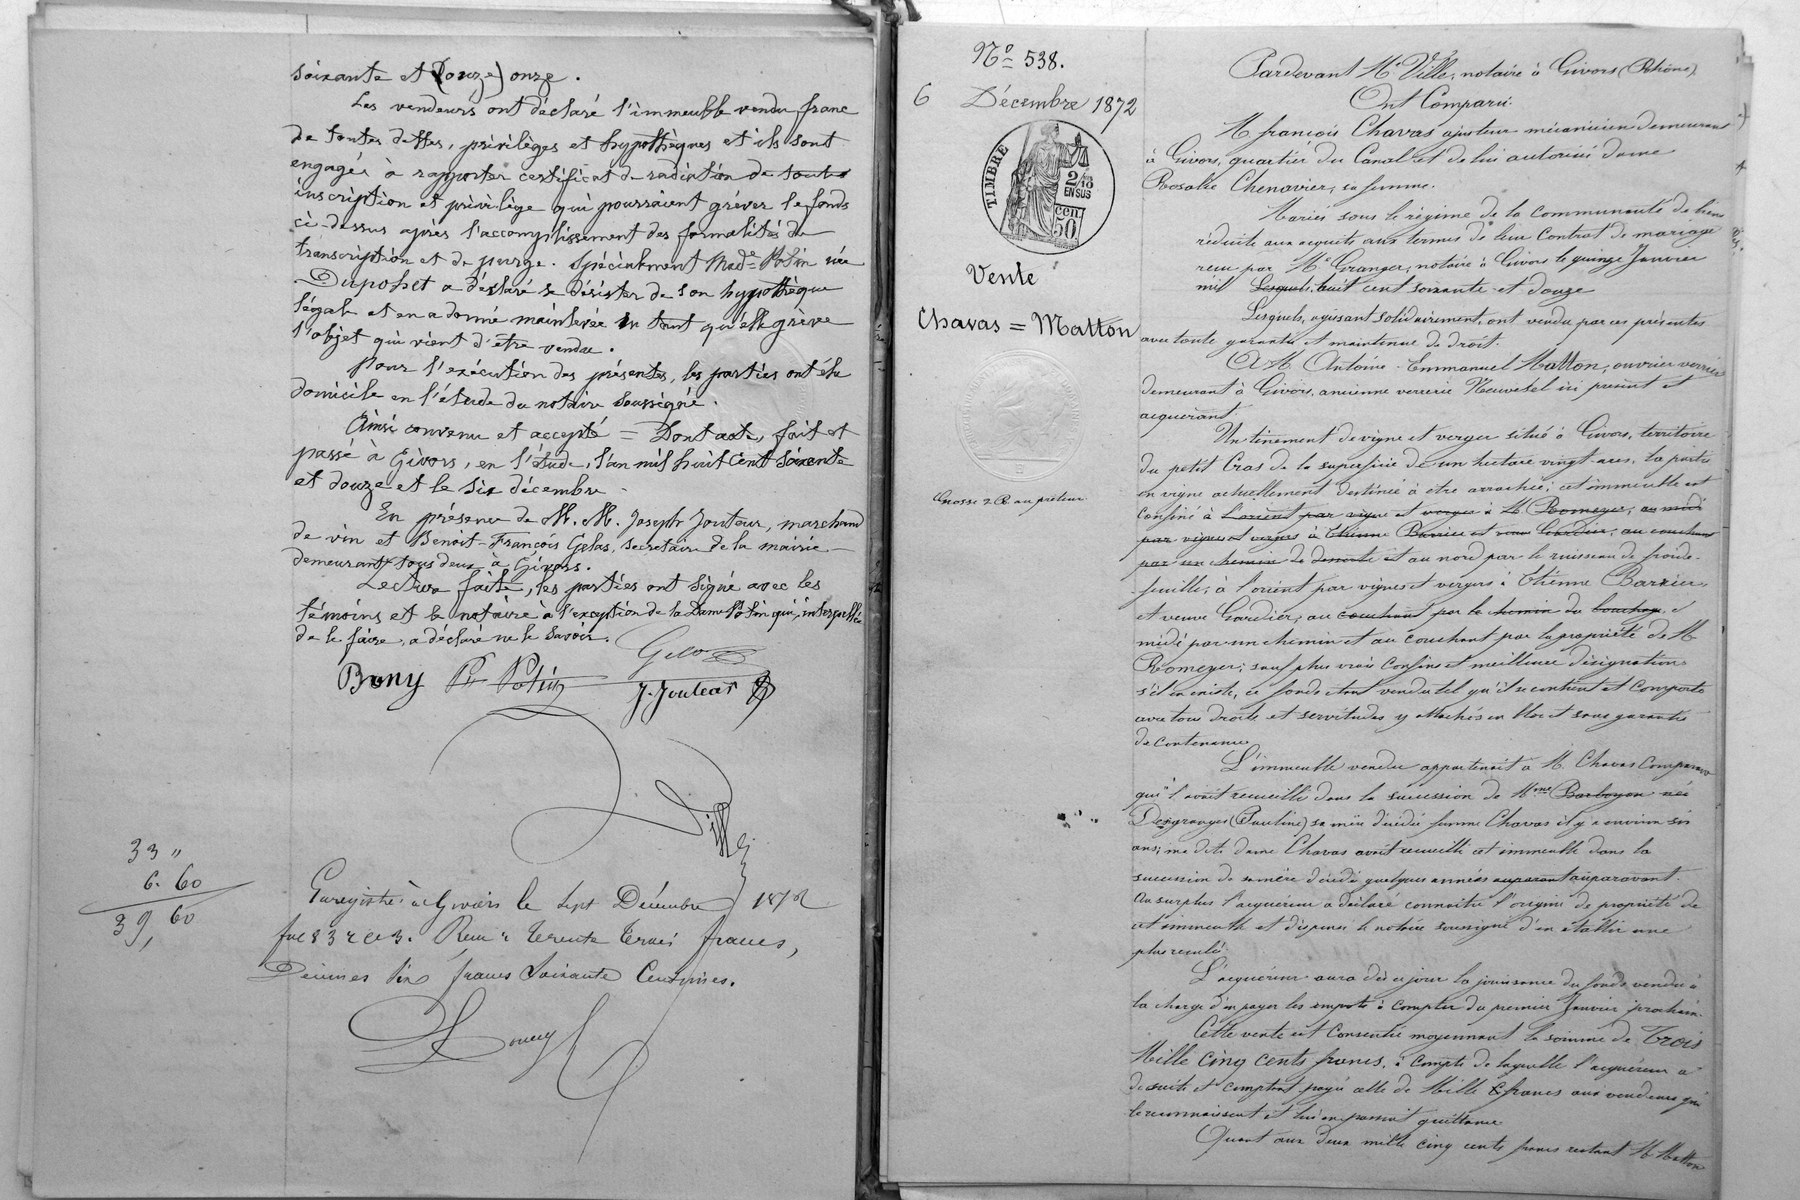 soixante et (douze) onze.
Les vendeurs ont déclaré l'immeuble vendu franc
de toutes dettes, privilèges et hypothèques et ils sont
engagés à rapporter certificat de radiation de toute
inscription et privilège qui pourraient grèver le fonds
ci-dessus après l'accomplissement des formalités de
transcription et de purge. Spécialement Made Potin née
a déclaré se désister de son hypothèque
légale et en a donné mainlevée en tant qu'elle grève
l'objet qui vient d'être vendu.
Pour l'exécution des présentes, les parties ont élu
domicile en l'étude du notaire soussigné.
Ainsi convenu et accepté = Dont acte, fait et
passé à Givors, en l'étude, l'an mil huit cent soixante
et douze et le six décembre.
En présence de M. M. Joseph Jouteur, marchand
de vin et Benoit-François Gelas, secrétaire de la mairie
demeurant tous deux à Givors.
Lecture faite, les parties ont signé avec les
témoins et le notaire à l'exception de la Dame Potin qui, interpellée
de le faire, a déclaré ne le savoir.
Gelas
Bony Potin J. Jouteur
Ville
33 "
6. 60
39, 60
Enregistré à Givors le sept Décembre 1872
Reçu : trente trois francs,
Décimes six francs soixante centimes.
No 538.
6 Décembre 1872
TIMBRE
2/10
EN SUS
50 cen
Vente
Chavas = Matton
Grosse
Pardevant Me Ville, notaire à Givors (Rhône).
Ont Comparu:
M. françois Chavas ajusteur mécanicien demeurant
à Givors, quartier du Canal et de lui autorisée dame
Rosalie Chenavier, sa femme.
Mariés sous le régime de la communauté de biens
réduite aux acquets aux termes de leur contrat de mariage
reçu par Me Granger, notaire à Givors le quinze Janvier
mil Lesquels huit cent soixante et douze
Lesquels, agissant solidairement, ont vendu par ces présentes
avec toute garantie et maintenue de droit.
A M. Antoine-Emmanuel Matton, ouvrier verrier
demeurant à Givors, ancienne verrerie Neuvesel ici présent et
acquérant.
Un tènement de vigne et verger situé à Givors, territoire
du petit Cras de la superficie de un hectare vingt ares, la partie
en vigne actuellement destinée à être arrachée; cet immeuble est
confiné à l'orient par vigne et verger à M. Romeyer, au midi
par vignes et verger à Etienne Barrier et veuve Gardier, au couchant
par un chemin de et au nord par le ruisseau de fronde-
feuille, à l'orient par vignes et vergers à Etienne Barrier
et veuve Gardier, au couchant par le chemin du et
midi par un chemin et au couchant par la propriété de M.
Romeyer; sauf plus vrais confins et meilleure désignation
s'il en existe, ce fonds étant vendu tel qu'il se contient et comporte
avec tous droits et servitudes y attachés en bloc et sans garantie
de contenance.
L'immeuble vendu appartenait à M. Chavas comparant
qui l'avait recueilli dans la succession de Mme née
Desgranges (Pauline) sa mère décédée femme Chavas il y a environ six
ans; ma dite dame Chavas avait recueilli cet immeuble dans la
succession de sa mère décédée quelques années auparavant auparavant.
Au surplus l'acquéreur a déclaré connaître l'origine de propriété de
cet immeuble et dispensé le notaire soussigné d'en établir une
plus reculée.
L'acquéreur aura dès ce jour la jouissance du fonds vendu à
la charge d'en payer les impots à compter du premier Janvier prochain.
Cette vente est consentie moyennant la somme de Trois
Mille cinq cents francs, à compte de laquelle l'acquéreur a
de suite et comptant payé celle de Mille francs aux vendeurs qui
le reconnaissent et lui en passent quittance
Quant aux deux mille cinq cents francs restant M. Matton